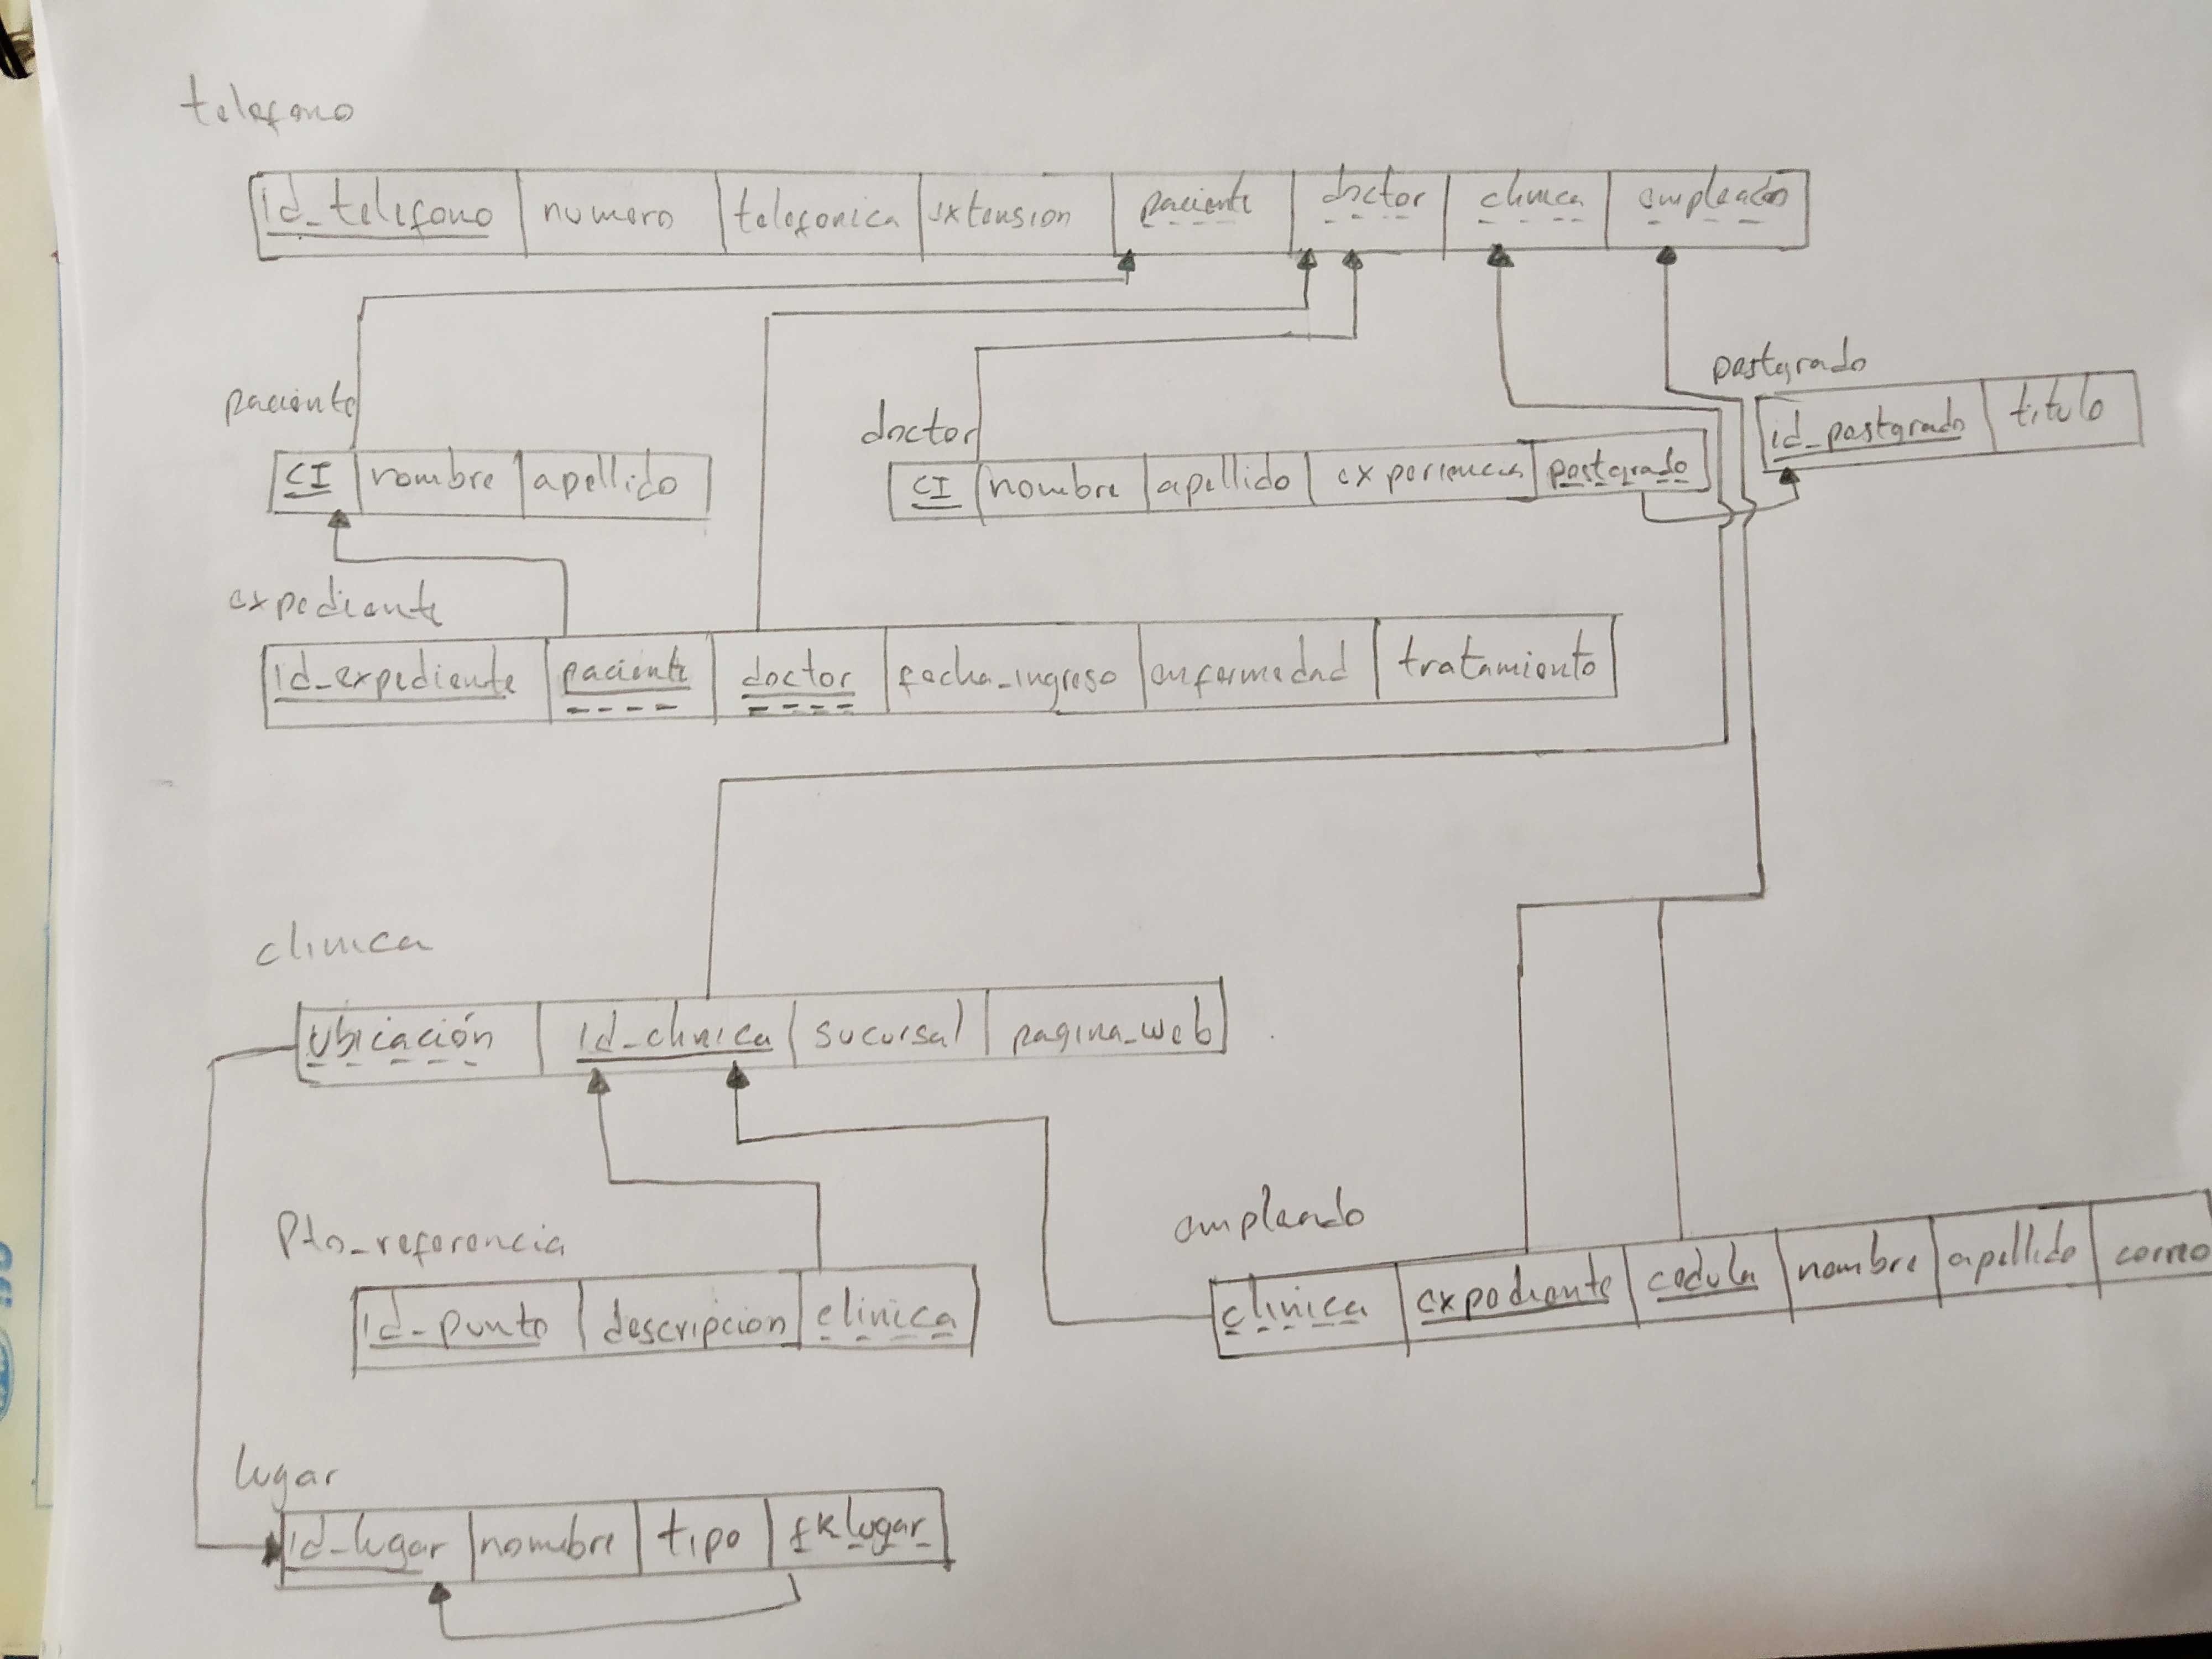 telefono
id_telefono numero telefonica extension paciente doctor clinica empleado
postgrado
id_postgrado titulo
paciente
CI nombre apellido
doctor
CI nombre apellido experiencia postgrado
expediente
id_expediente paciente doctor fecha_ingreso enfermedad tratamiento
clinica
Ubicación id_clinica sucursal pagina_web
Pto_referencia
id_punto descripcion clinica
empleado
clinica expediente cedula nombre apellido correo
lugar
id_lugar nombre tipo fk lugar